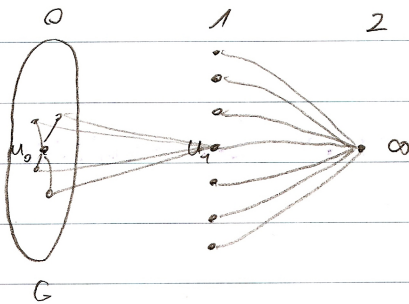 0 1 2
u₀ u₁ ∞
G